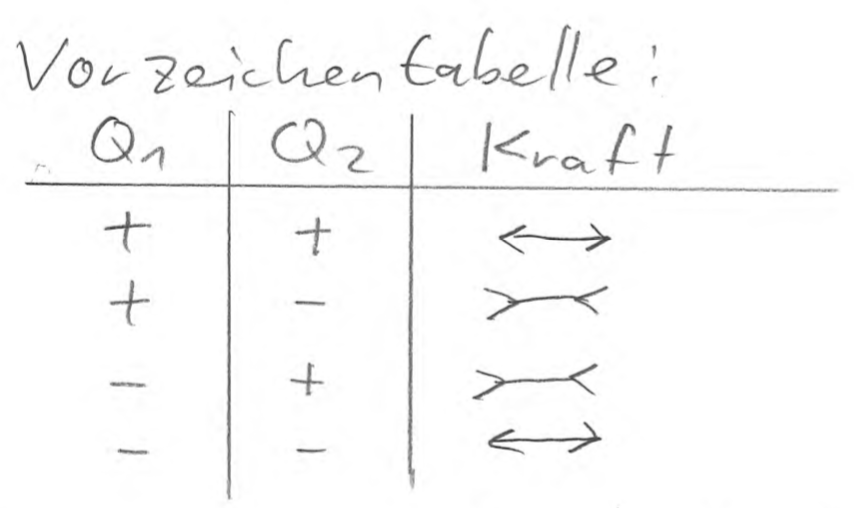 Vorzeichentabelle:
Q1 Q2 Kraft
+ + ↔
+ - >-<
- + >-<
- - ↔